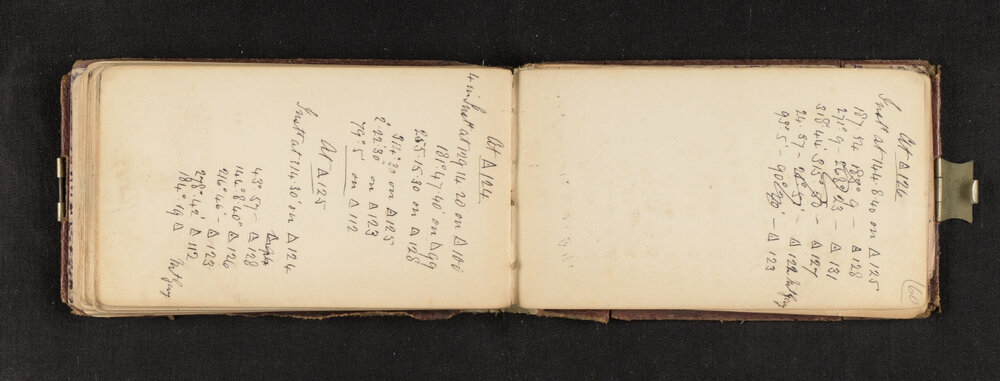 At Δ 124
4 in Inst at 129 14 20 on Δ 100
181° 47' 40" on Δ 99
255. 15. 30 on Δ 128
314° 30 on Δ 125
2° 22' 30" on Δ 123
79° 5' on Δ 112
At Δ 125
Inst at 314 30' on Δ 124
43° 57' - Δ 128
144° 8' 40" Δ 126
216° 46' - Δ 123
278° 42' Δ 112
184° 19' Δ
60
At Δ 126
Inst at 144 8 40 on Δ 125
187. 54 188° 9 - Δ 128
271° 9 - 268° 23 - Δ 131
318° 44 315° 50 - Δ 127
24. 37 - 24° 37' - Δ 122
93° 5 - 90° 20' - Δ 123